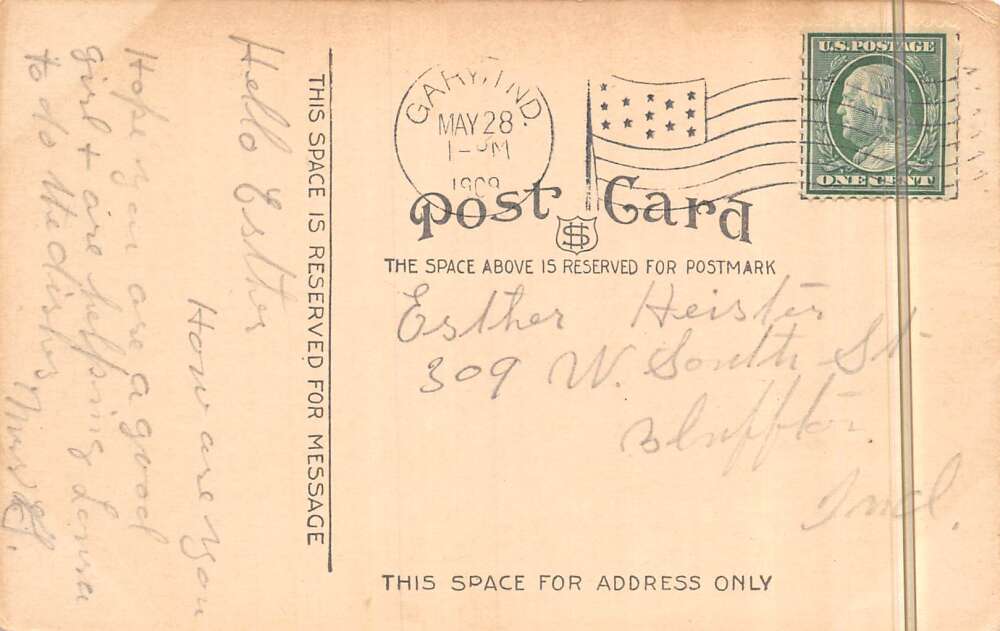 Hello Esther
How are you
Hope you are a good
girl + are helpping Lanra
to do the dishes,
Mrs
THIS SPACE IS RESERVED FOR MESSAGE
GARY, IND.
MAY 28
1-PM
1909
U.S. POSTAGE
ONE CENT
Post Card
THE SPACE ABOVE IS RESERVED FOR POSTMARK
Esther Heister
309 W. South St
Bluffton
Ind.
THIS SPACE FOR ADDRESS ONLY